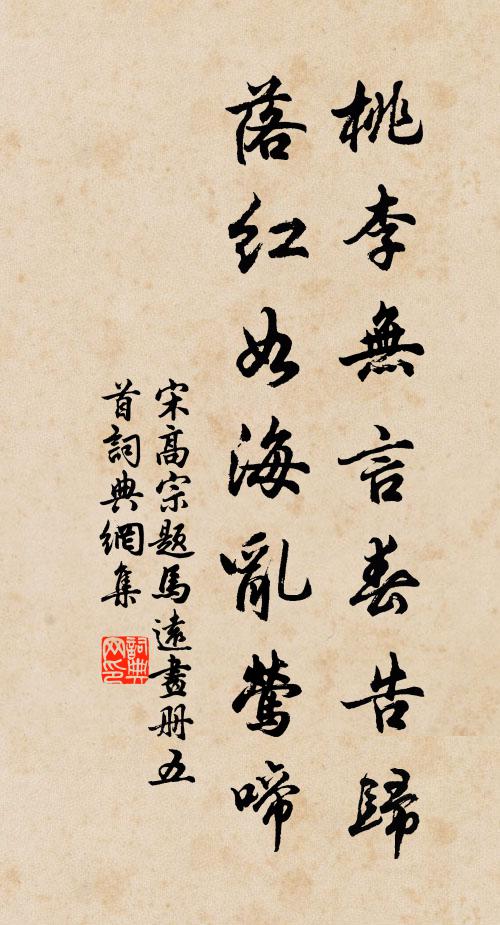 桃李無言春告歸
落紅如海亂鶯啼
宋高宗題馬遠畫册五
首詞典網集
詞典
网印